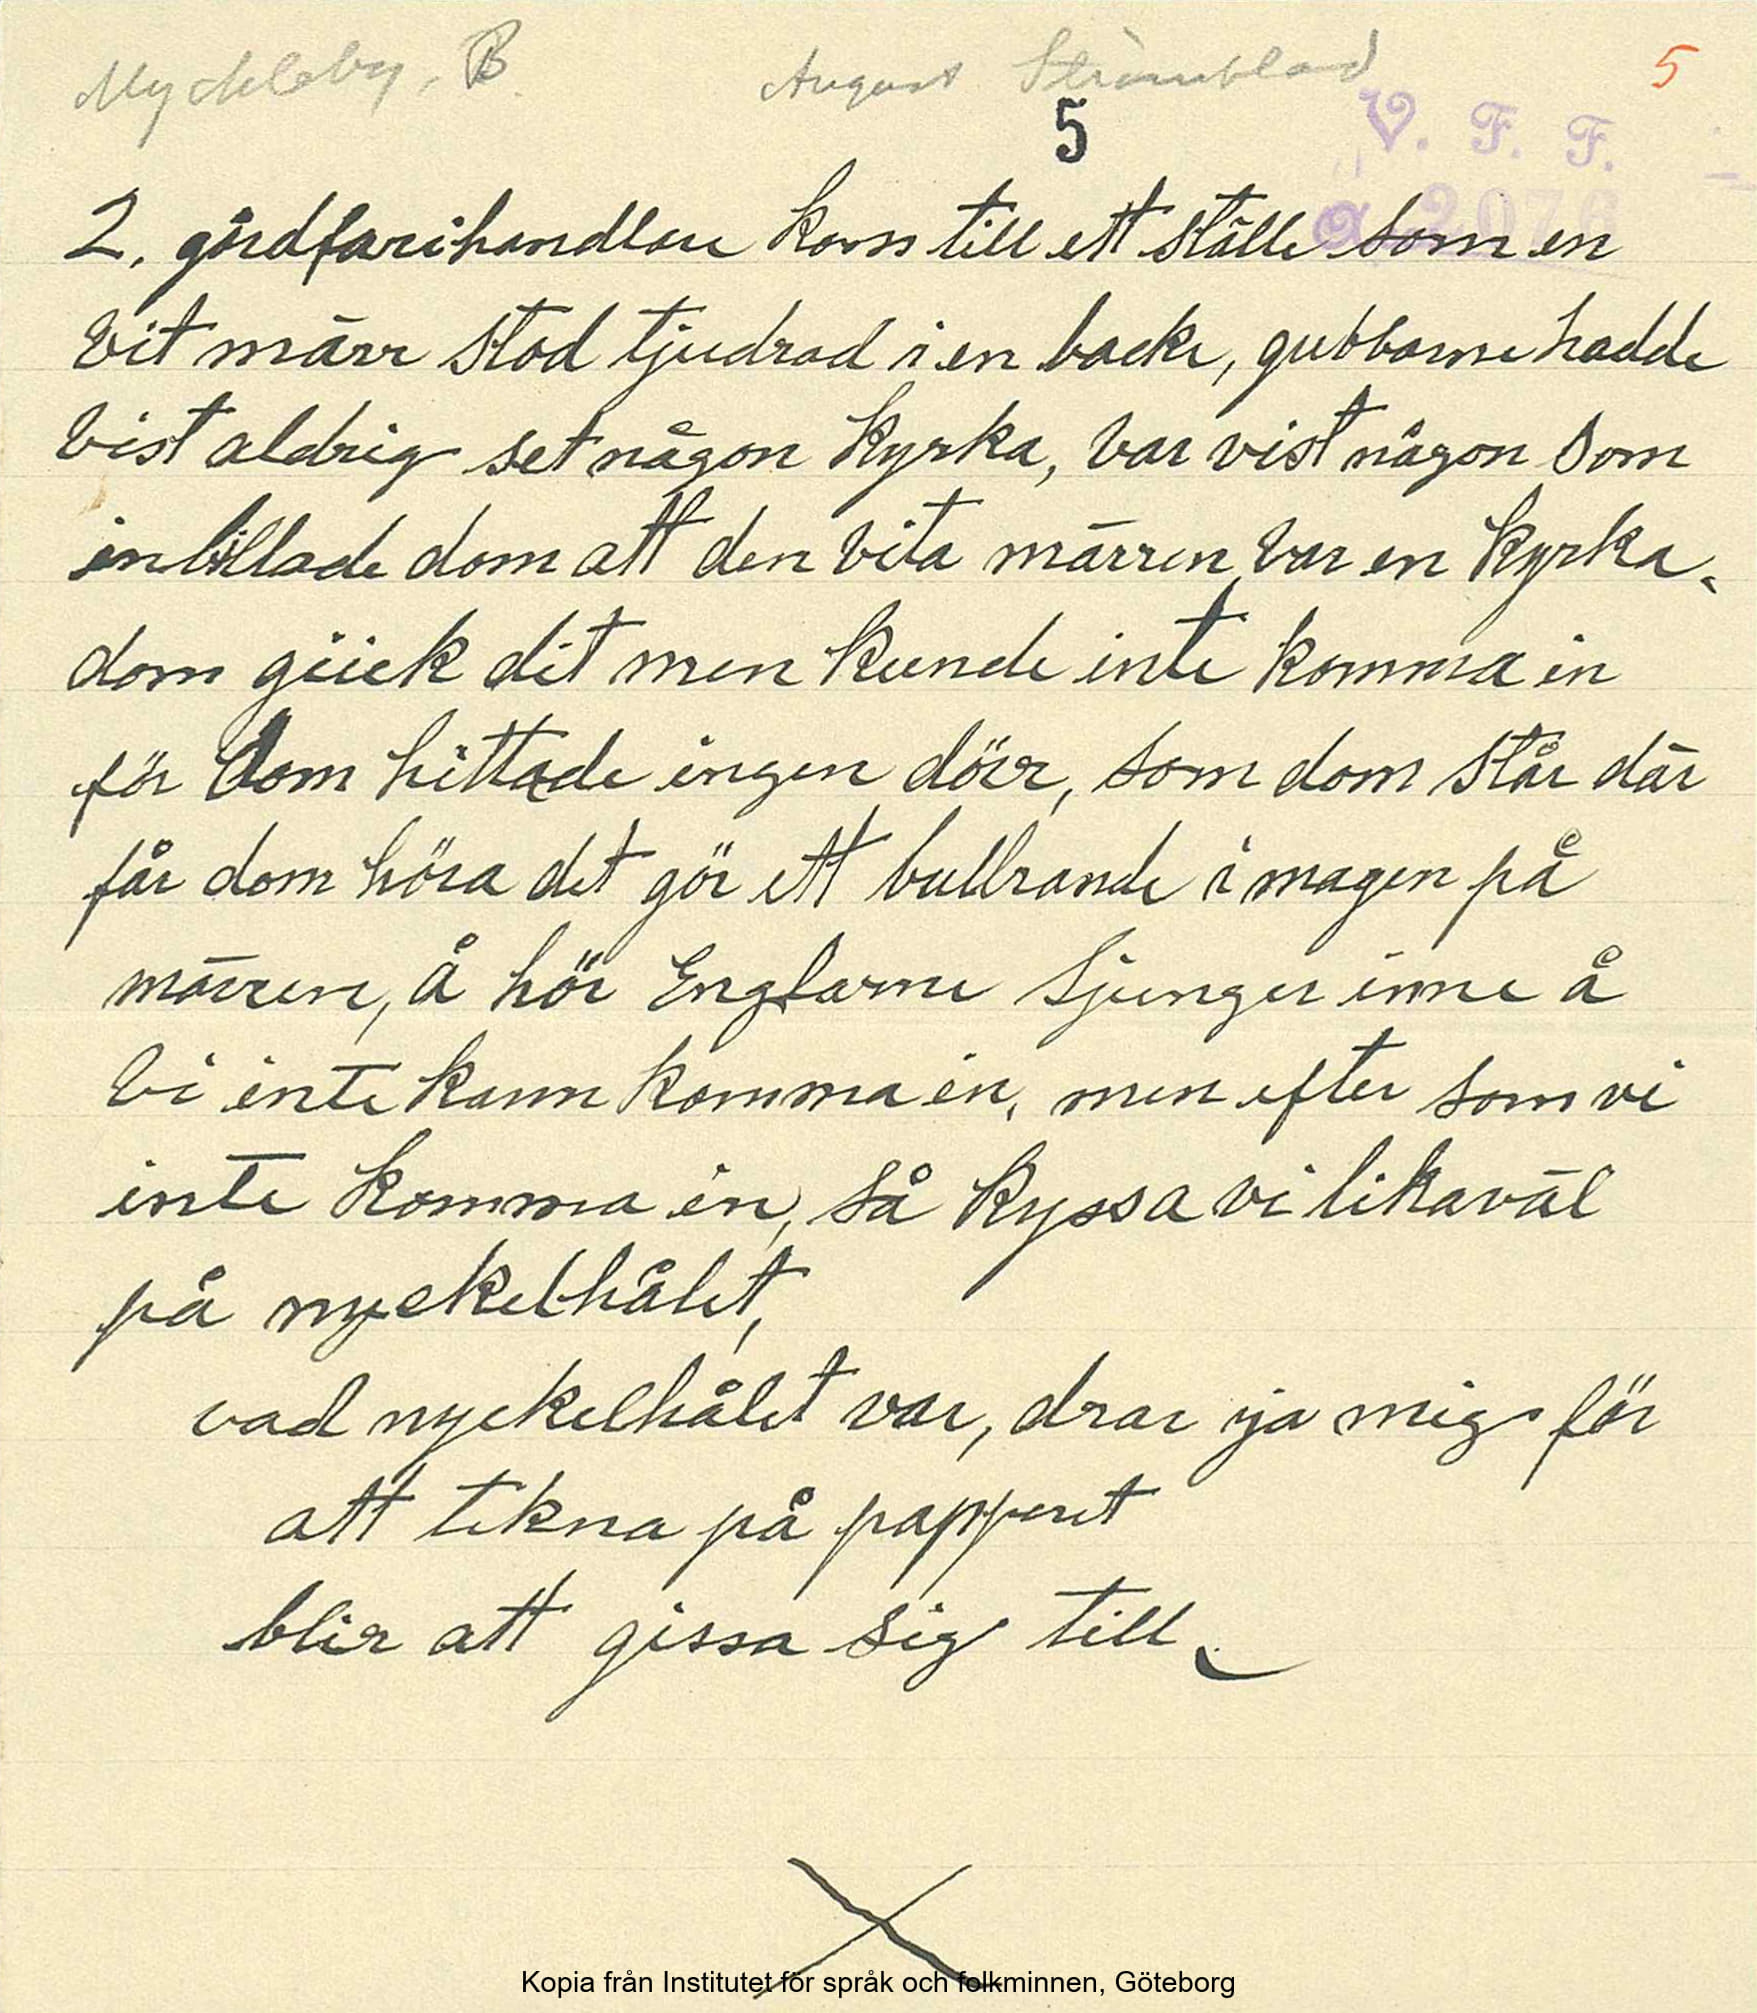 Myckleby, B. August Strömblad 5
5
V. F. F.
2076
2. gårdfarihandlare kom till ett ställe som en
vit märr stod tjudrad i en backe, gubbarne hadde
vist aldrig set någon kyrka, var vist någon som
inbillade dom att den vita märren var en kyrka.
dom giick dit men kunde inte komma in
för dom hittade ingen dörr, som dom står där
får dom höra det gör ett bullrande i magen på
märren, å hör Englarne sjunger inne å
vi inte kann komma in, men efter som vi
inte komma in, så kyssa vi likaväl
på nyckelhålet,
vad nyckelhålet var, drar ja mig för
att tekna på papperet
blir att gissa sig till.
Kopia från Institutet för språk och folkminnen, Göteborg